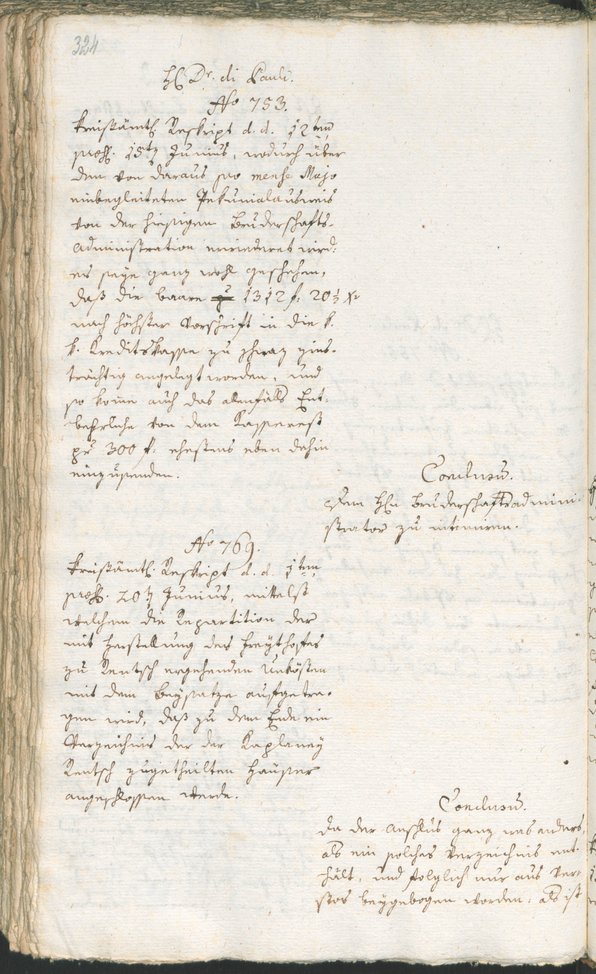 324
H: Dr. di Pauli.
No 753.
Kreisämtl. Reskript d. d. 12ten
praes. 15ty Junius, wodurch über
den von daraus pro mense Majo
einbegleiteten Pekunialausweis
von der hiesigen Bruderschafts-
administration erwiederet wird:
es seye ganz wohl geschehen,
daß die baare 1312 f: 20½ xr
nach höchster Vorschrift in die k.
k. Kreditskasse zu Schwaz zins-
trächtig angelegt worden, und
so könne auch das allenfalls Ent-
behrliche von dem Kasserest
pr 300 f. ehestens eben dahin
einzusenden.
Conclusum.
Dem Hn Bruderschaftsadmini-
strator zu intimiren.
No 769.
Kreisämtl. Reskript d. d. 9ten
praes. 20ty Junius, mittelst
welchem die Repartition der
mit Herstellung des Freythofes
zu Rentsch ergehenden Unkösten
mit dem Beysatze aufgetra-
gen wird, daß zu dem Ende ein
Verzeichnis der der Kaplaney
Rentsch zugetheilten Häuser
angeschlossen werde.
Conclusum.
Da der Anschlus ganz was anders,
als ein solches Verzeichnis ent-
hält, und folglich nur aus Ver-
stos beygebogen worden: als ist